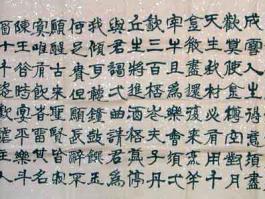 成雪人生得意須盡
歡莫使金樽空對月
天生我材必有用千
金散盡還復來烹羊
宰牛且為樂會須一
飲三百杯岑夫子丹
丘生將進酒杯莫停
與君歌一曲請君為
我傾耳聽鐘鼓饌玉
何足貴但願長醉不
願醒古來聖賢皆寂
寞唯有飲者留其名
陳王昔時宴平樂斗
酒十千恣歡謔主人